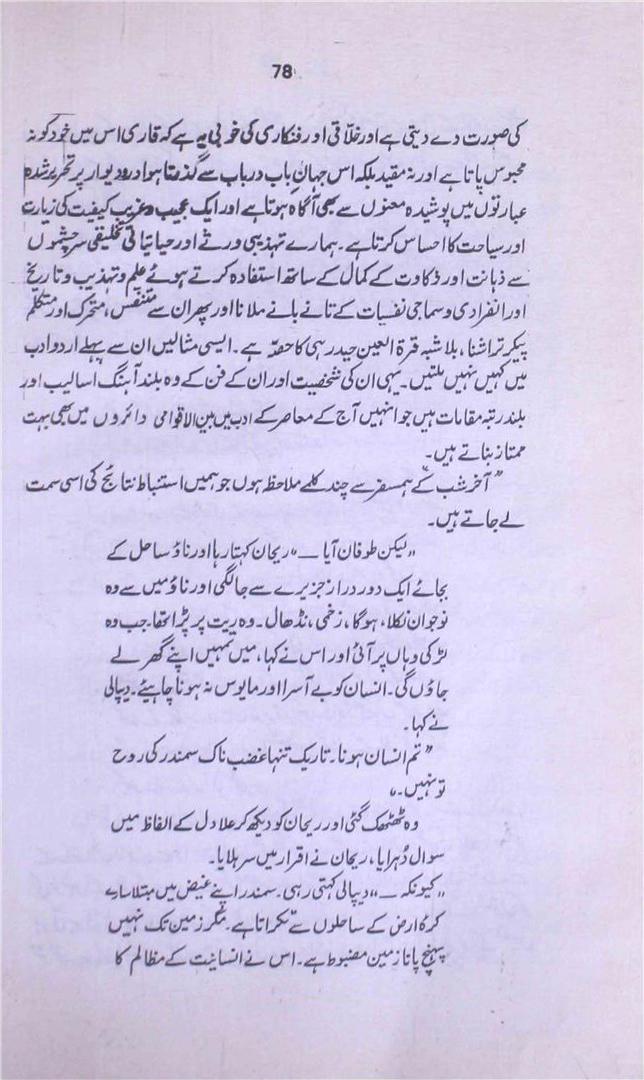 78
کی صورت دے دیتی ہے اور خلّاقی اور فنکاری کی خوبی یہ ہے کہ قاری اس میں خود کو نہ
محبوس پاتا ہے اور نہ مقید بلکہ اس جہانِ باب در باب سے گذرتا ہوا در و دیوار پر تحریر شدہ
عبارتوں میں پوشیدہ معنوں سے بھی آگاہ ہوتا ہے اور ایک عجیب و غریب کیفیت کی زیارت
اور سیاحت کا احساس کرتا ہے۔ ہمارے تہذیبی ورثے اور حیاتیاتی تخلیقی سرچشموں
سے ذہانت اور ذکاوت کے کمال کے ساتھ استفادہ کرتے ہوئے علم و تہذیب و تاریخ
اور انفرادی و سماجی نفسیات کے تانے بانے ملانا اور پھر ان سے متنفس، متحرک اور متکلم
پیکر تراشنا، بلا شبہ قرۃ العین حیدر ہی کا حصّہ ہے۔ ایسی مثالیں ان سے پہلے اردو ادب
میں کہیں نہیں ملتیں۔ یہی ان کی شخصیت اور ان کے فن کے وہ بلند آہنگ اسالیب اور
بلند رتبہ مقامات ہیں جو انہیں آج کے معاصر کے ادب میں بین الاقوامی دائروں میں بھی بہت
ممتاز بناتے ہیں۔
"آخر شب کے ہمسفر" سے چند کلمے ملاحظ ہوں جو ہمیں استنباط نتائج کی اسی سمت
لے جاتے ہیں۔
"لیکن طوفان آیا ــ" ریحان کہتا رہا اور ناؤ ساحل کے
بجائے ایک دور دراز جزیرے سے جا لگی اور ناؤ میں سے وہ
نوجوان نکلا، ہوگا، زخمی، نڈھال۔ وہ ریت پر پڑا تھا جب وہ
لڑکی وہاں پر آئی اور اس نے کہا، میں تمہیں اپنے گھر لے
جاؤں گی۔ انسان کو بے آسرا اور مایوس نہ ہونا چاہیئے۔ دیپالی
نے کہا۔
"تم انسان ہونا۔ تاریک تنہا غضب ناک سمندر کی روح
تو نہیں۔"
وہ ٹھٹھک گئی اور ریحان کو دیکھ کر علا دل کے الفاظ میں
سوال دُہرایا، ریحان نے اقرار میں سر ہلایا۔
"کیونکہ ــ" دیپالی کہتی رہی۔ سمندر اپنے غیض میں مبتلا سارے
کرۂ ارض کے ساحلوں سے ٹکراتا ہے۔ مگر زمین تک نہیں
پہنچ پاتا زمین مضبوط ہے۔ اس نے انسانیت کے مظالم کا